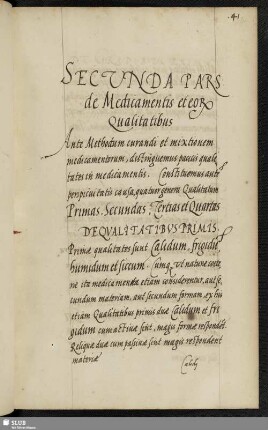 41
SECUNDA PARS
de Medicamentis et eoꝝ
Qualitatibus
Ante Methodum curandi et mixtionem
medicamentorum, distinguemus paucis quali
tates in medicamentis. Constituemus aute
perspicuitatis causa, quatuor genera Qualitatum
Primas, Secundas, Tertias et Quartas
DE QVALITATIBVS PRIMIS.
Primæ qualitates sunt Calidum, frigidū
humidum et siccum. Cumq, vt natura conti
ne ita medicamenta etiam considerentur, aut se,
cundum materiam, aut secundum formam, ex his
etiam Qualitatibus primis duæ Calidum et fri
gidum cum actiuæ sint, magis formæ respondēt.
Reliquæ duæ cum passiuæ sint magis respondent
materiæ
Calidū
SLUB